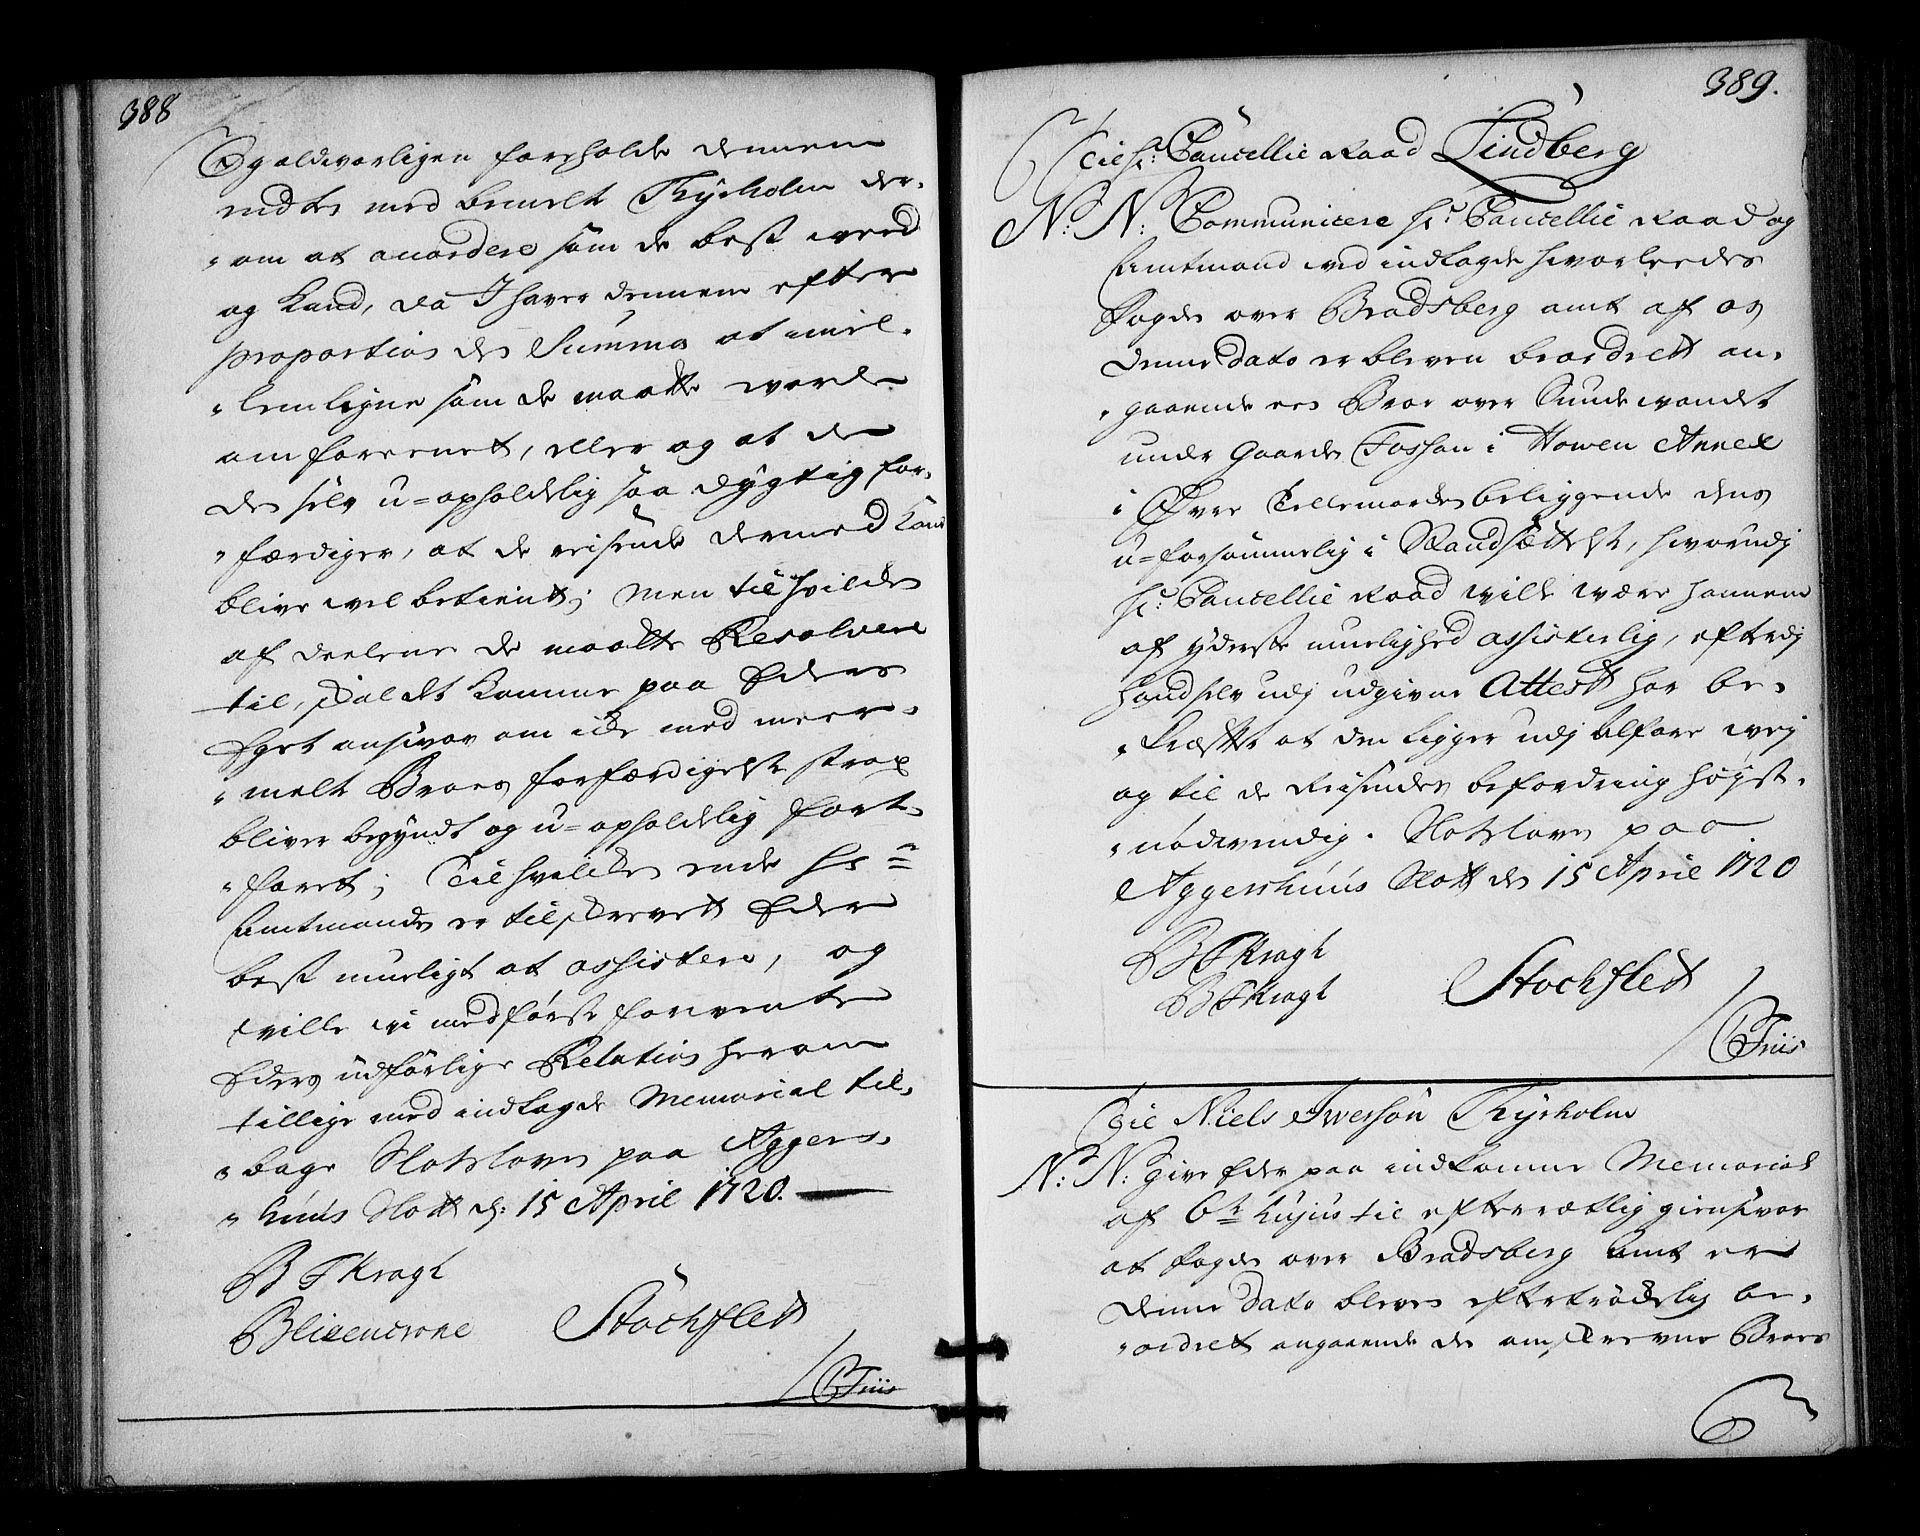 388
Og aldvorligen foreholde dennem
endten med bemelte Thyrholm der-
om at accordere som de best weed
og kand, da I haver dennem efter
proportion den Summa at imel-
lemligne som de maatte worde
om foreenet, eller og at de
den selv u=opholdelig saa dygtig for-
færdiger, at de reisende dermed kand
blive wel betient; Men til hvilcken
af deelene de maatte Resolvere
til, skal det komme paa Eders
Eget answar om icke med meer-
melte Broes forfærdigelse strax
bliver begyndt og u=opholdelig fort-
faret; Til hvilcken ende Hr
Amtmanden er tilskrevet Eder
best mueligt at assistere, og
wille wi med første forvente
Eders udførlige Relation herom
tillige med indlagde Memorial til-
bage Slotsloven paa Aggers-
huus Slott d: 15 April 1720.
B F Kragh
Blixencrone Stochflett
/ C Friis
389.
Til Hr: Cancellie Raad Lindberg
N: N: Communicere Hr: Cancellie Raad og
Amtmand wed indlagde hworleedes
fogden over Bradsberg amt af os
denne dato er bleven beordrett an-
gaaende een Broe over Sunde wandet
under gaarden Fossan i Howen Annex
i Øvre Tellemarcken beliggende dens
u-forsømmelig i Standsættelse, hworudj
Hr: Cancellie Raad wille wære hannem
af yderste muelighed assisterlig, efterdj
hand selv udj udgivne Attest har be-
kræftet at den ligger udj alfare wej
og til de Reisendes befordring høyst-
nødwendig. Slotsloven paa
Aggershuus Slott den 15 April 1720
B F Kragh
B F Kragh Stochflett
/ C Friis
Til Niels Iwersøn Thyrholm
N: N: give Eder paa indkomne Memorial
af 6te hujus til efterretlig giensvar
at fogden over Bradsberg amt er
denne dato bleven eftertrøckelig be-
ordret angaaende den omskrevne Broes